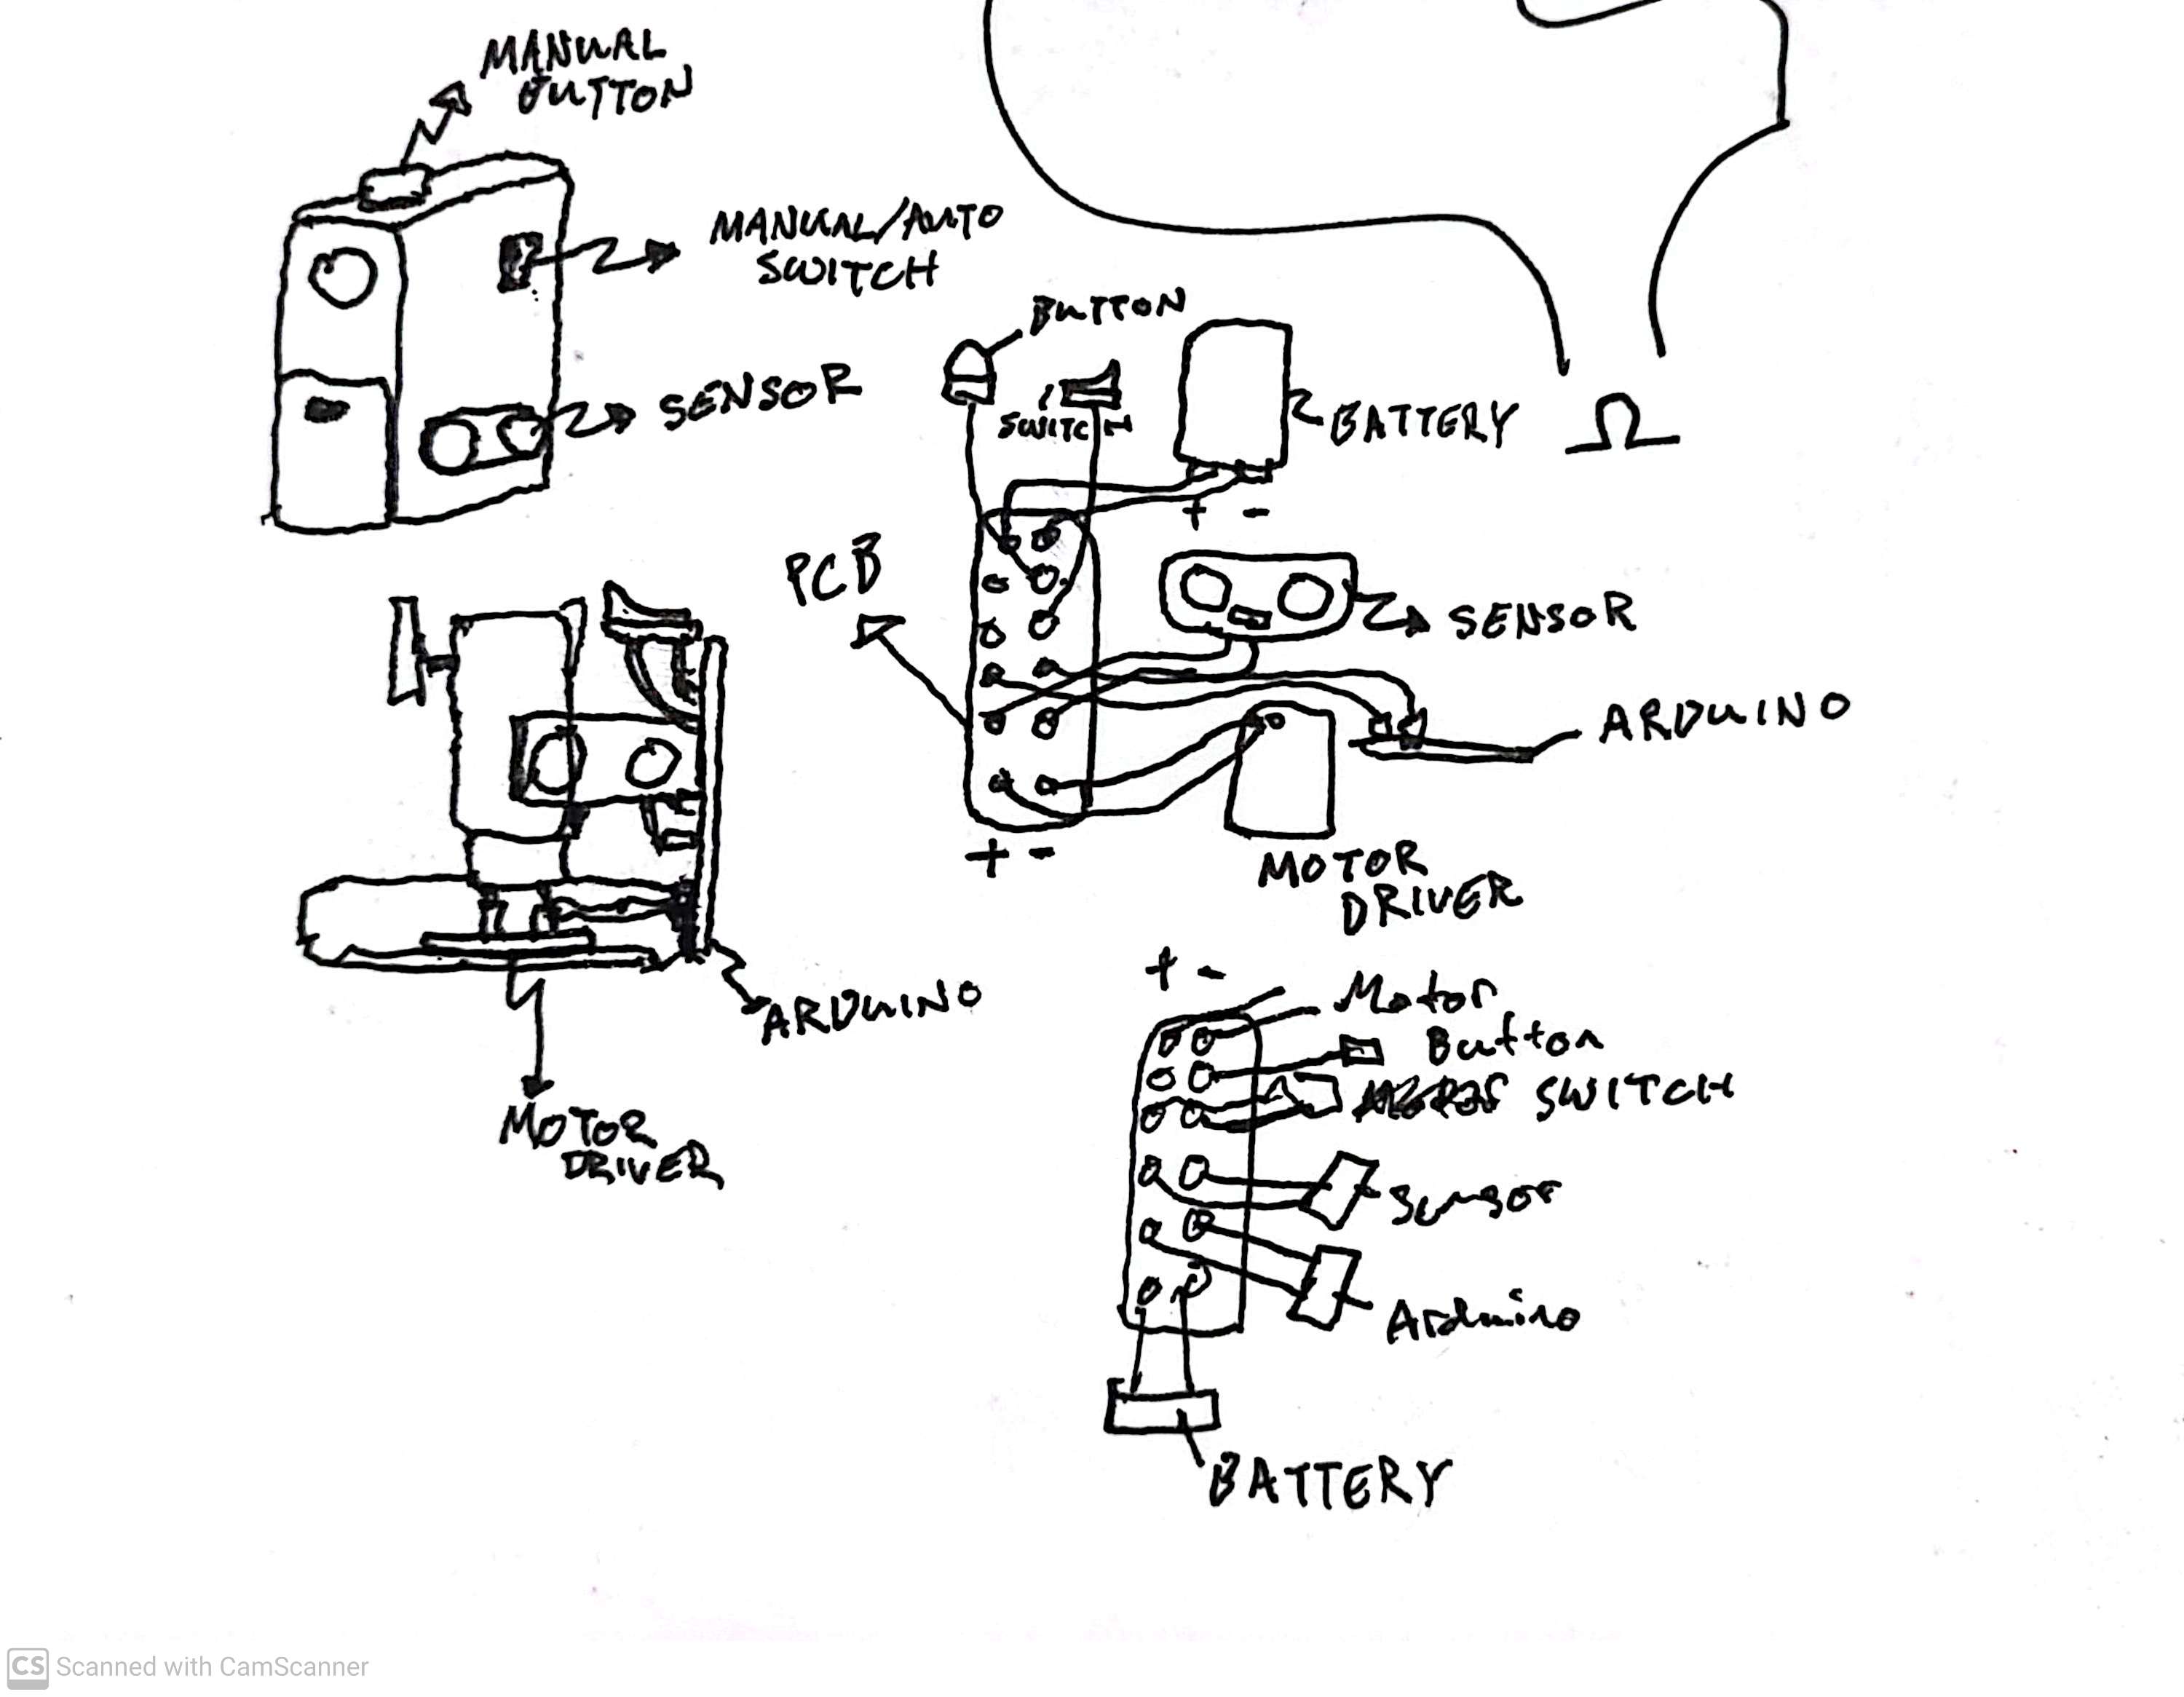 MANUAL
BUTTON
MANUAL/AUTO
SWITCH
SENSOR
BUTTON
SWITCH
BATTERY
Ω
+ -
PCB
SENSOR
ARDUINO
+ -
MOTOR
DRIVER
ARDUINO
MOTOR
DRIVER
+ -
Motor
Button
SWITCH
Sensor
Arduino
BATTERY
CS Scanned with CamScanner